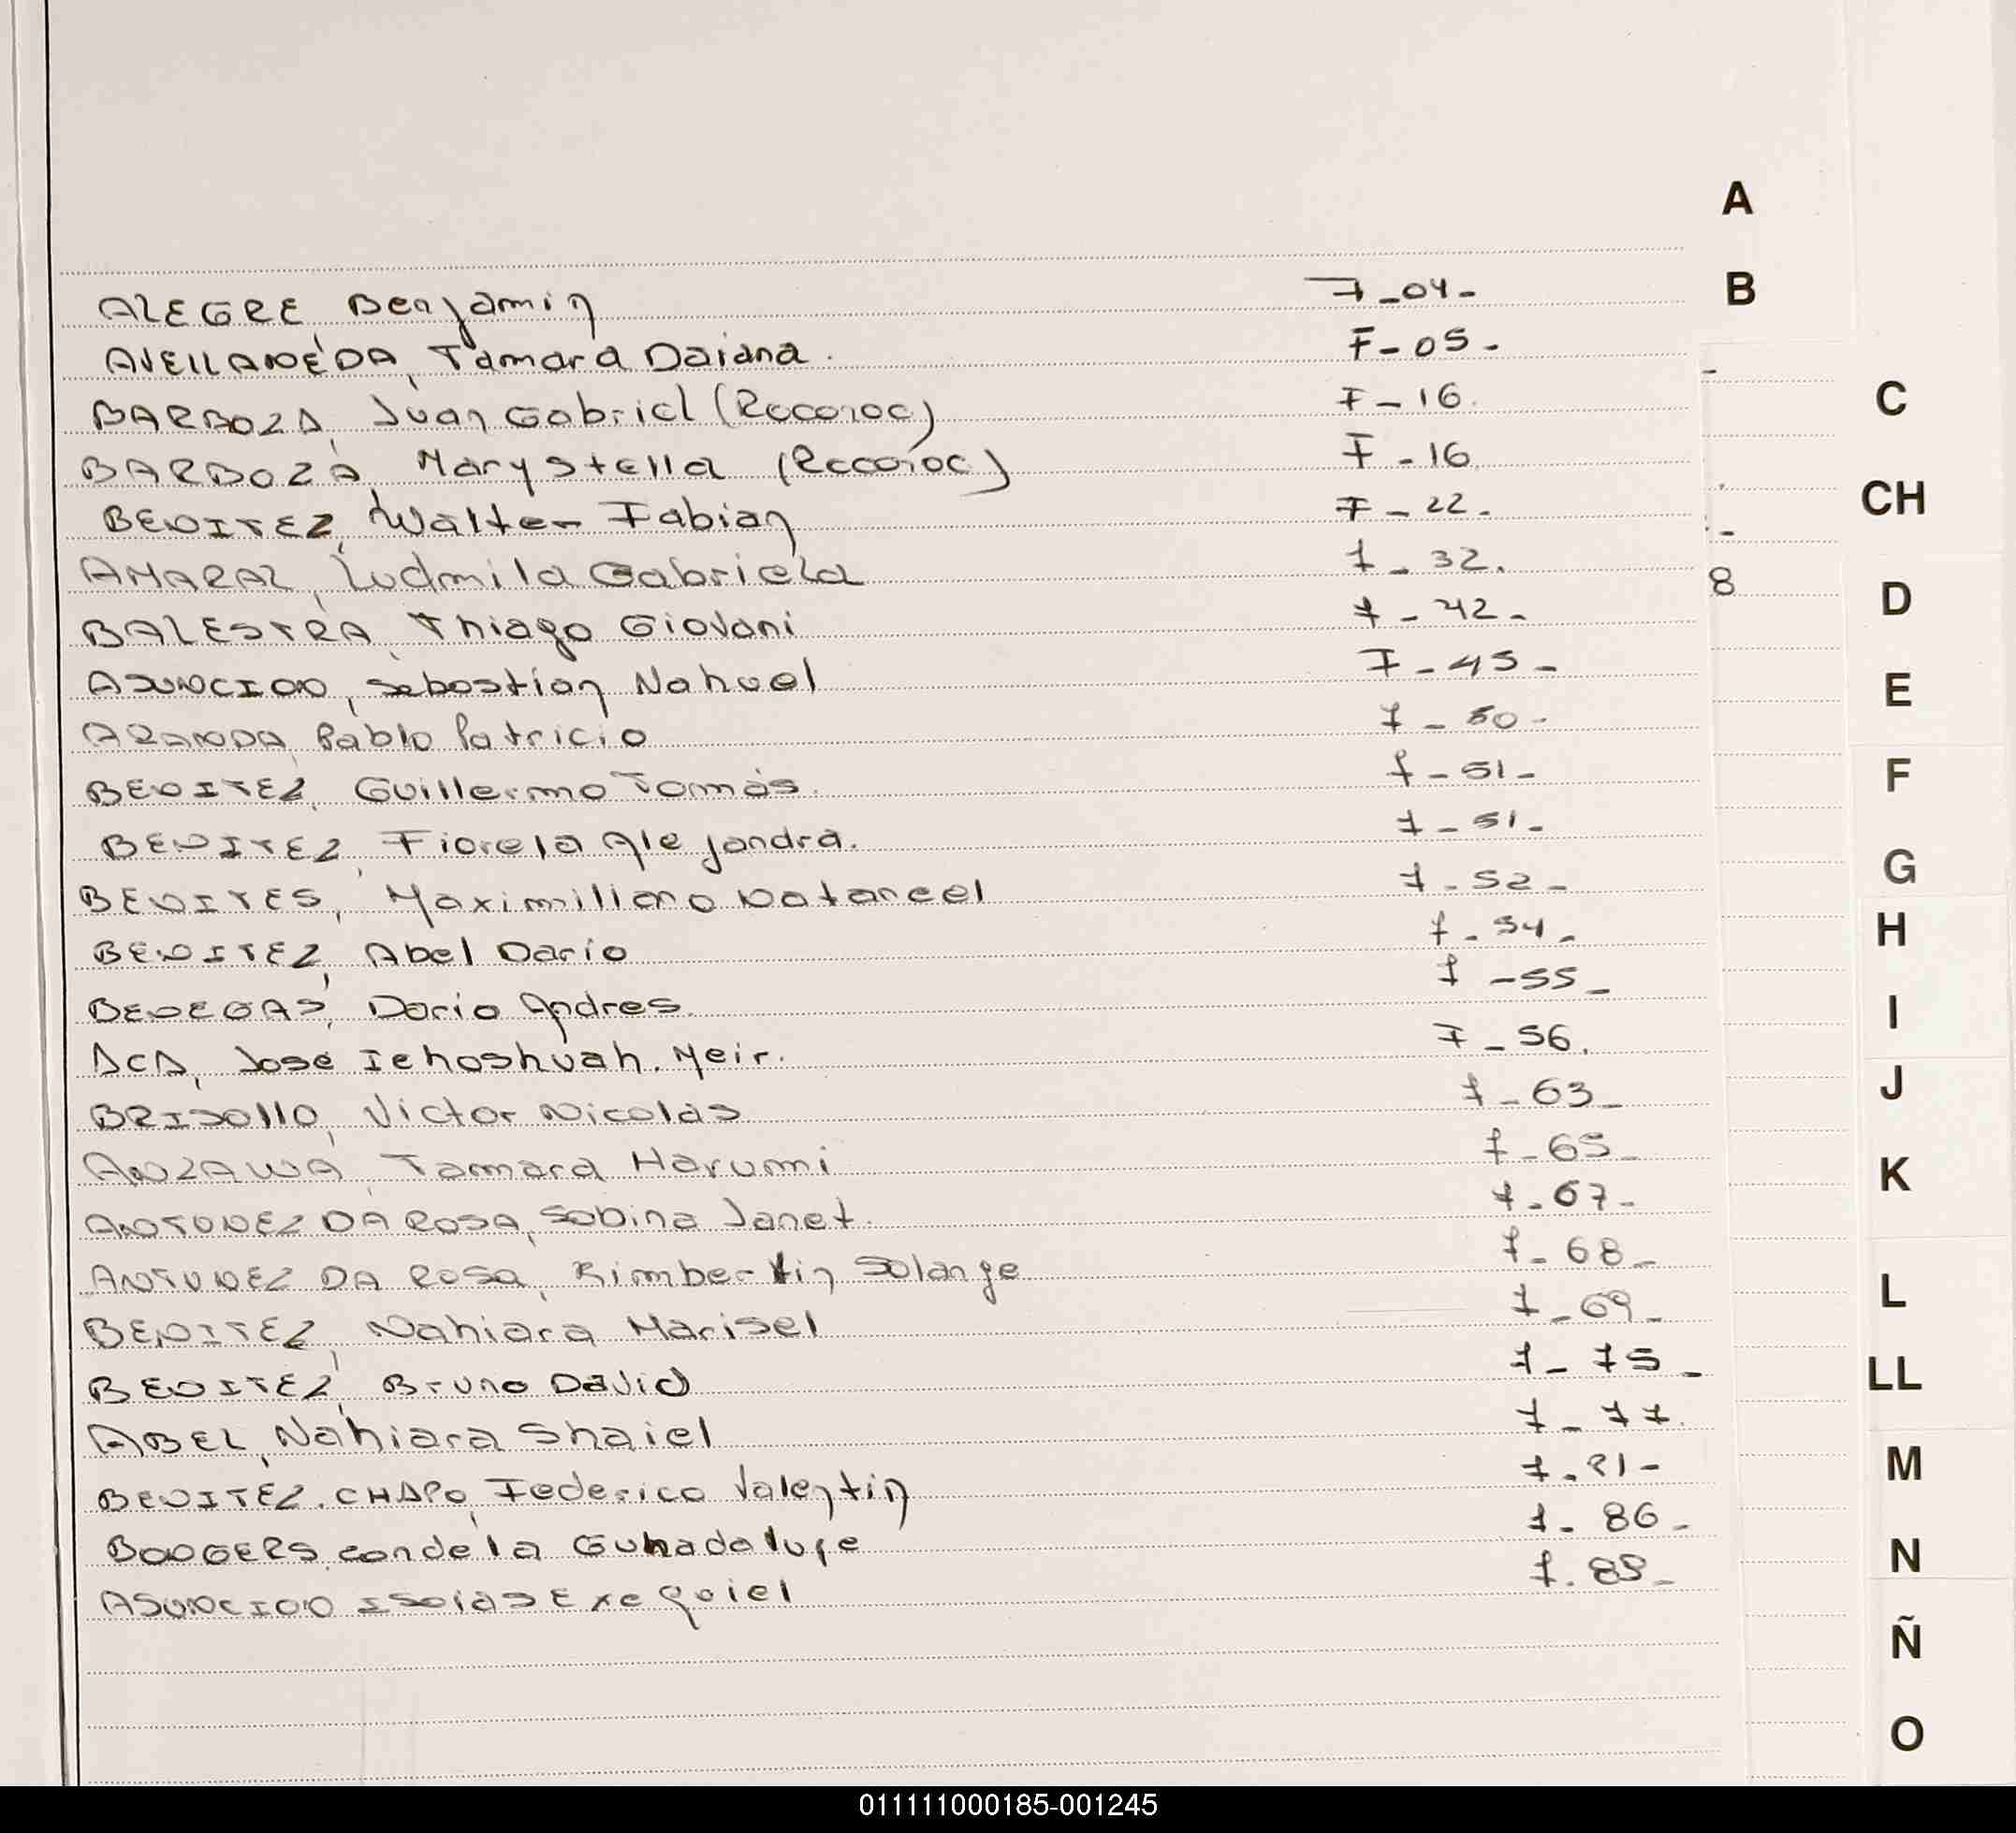 A
B
ALEGRE Benjamin 7-04-
AVELLANEDA, Tamara Daiana. F-05-
BARBOZA, Juan Gabriel (Reconoc) F-16.
C
BARBOZA, Mary Stella (Reconoc) F-16
BENITEZ, Walter Fabian F-22-
CH
AMARAL, Ludmila Gabriela f-32.
8
D
BALESTRA, Thiago Giovani f-42-
ASUNCION, Sebastian Nahuel F-45-
E
ARANDA, Pablo Patricio f-50-
BENITEZ, Guillermo Tomás. f-51-
F
BENITEZ, Fiorela Alejandra. f-51-
G
BENITES, Maximiliano Natanael f-52-
H
BENITEZ, Abel Dario f-54-
BENEGAS, Dario Andres. f-55-
I
ACA, Jose Iehoshuah. Meir. F-56.
J
BRISOLLO, Victor Nicolas f-63-
ANZAWA, Tamara Harumi f-65-
K
ANTUNEZ DA ROSA, Sabina Janet. f-67-
ANTUNEZ DA ROSA, Kimbertin Solange f-68-
L
BENITEZ, Nahiara Marisel f-69-
BENITEZ, Bruno David f-75-
LL
ABEL, Nahiara Shaiel f-77.
M
BENITEZ. CHAPO, Federico Valentin f-81-
BOOGERS, Candela Guhadalupe f-86-
N
ASUNCION Isaias Exequiel
Ñ
O
011111000185-001245